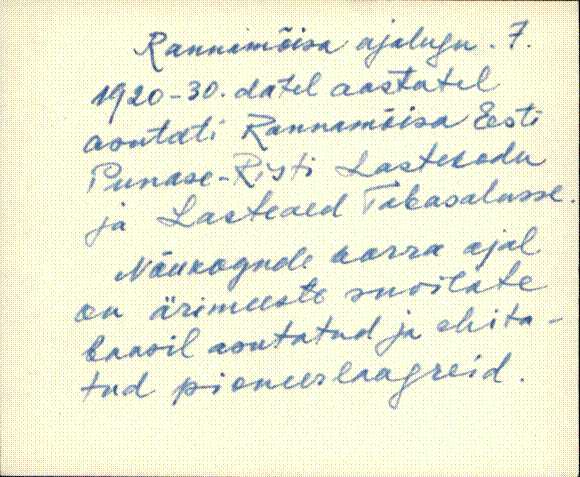 Rannamõisa ajalugu. 7.
1920-30. datel aastatel
asutati Rannamõisa Eesti
Punase-Risti Lastekodu
ja Lasteaed Tabasalusse.
Nõukogude korra ajal
on ärimeeste suvilate
baasil asutatud ja ehita-
tud pioneerlaagreid.